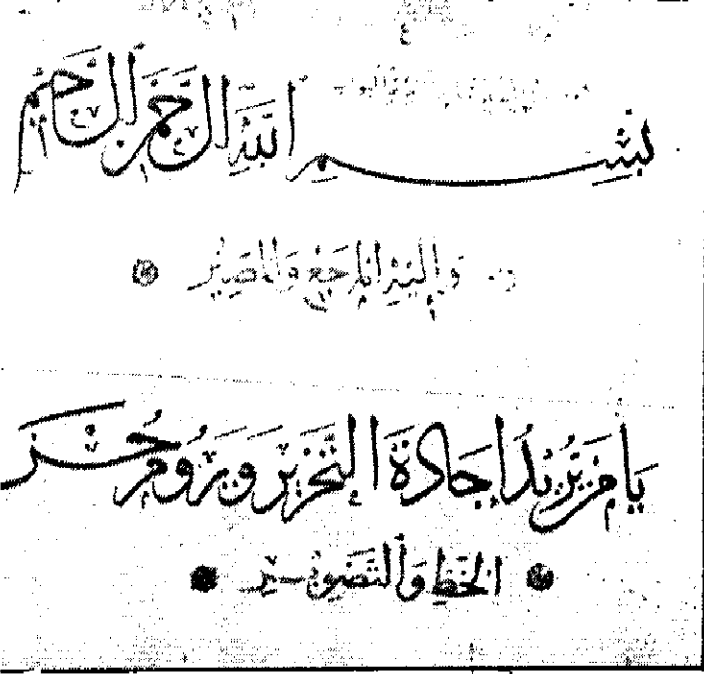 بِسْمِ اللَّهِ الرَّحْمَنِ الرَّحِيمِ
وَإِلَيْهِ الْمَرْجَعُ وَالْمَصِيرُ
يَا مَنْ يُرِيدُ إِجَادَةَ التَّحْرِيرِ وَيَرُومُ حُسْنَ
الْخَطِّ وَالتَّصْوِيرِ